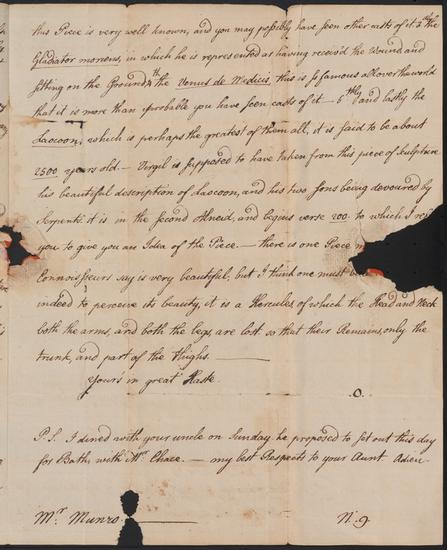 this Piece is very well known, and you may possibly have seen other casts of it 3.thly the
Gladiator moriens, in which he is represented as having receiv'd the Wound and
sitting on the Ground 4th the Venus de Medicis, this is so famous all over the world
that it is more than probable you have seen casts of it — 5thly and lastly the
Laocoon, which is perhaps the greatest of them all, it is said to be about
2500 years old — Virgil is supposed to have taken from this piece of Sculpture
his beautiful description of Laocoon, and his two sons being devoured by
Serpents. it is in the second Æneid, and begins verse 200. to which I
you to give you an Idea of the Piece. — there is one Piece
Connoisseurs say is very beautiful, but I think one must
indeed to perceive its beauty, it is a Hercules, of which the Head and Neck
both the arms, and both the legs, are lost. so that their Remains, only the
trunk, and part of the thighs. —
Yours in great Haste.
.O.
P.S. I dined with your uncle on Sunday he proposed to set out this day
for Bath, with Mr. Chace. — my best Respects to your Aunt Adieu
Mr. Munro
N. 9